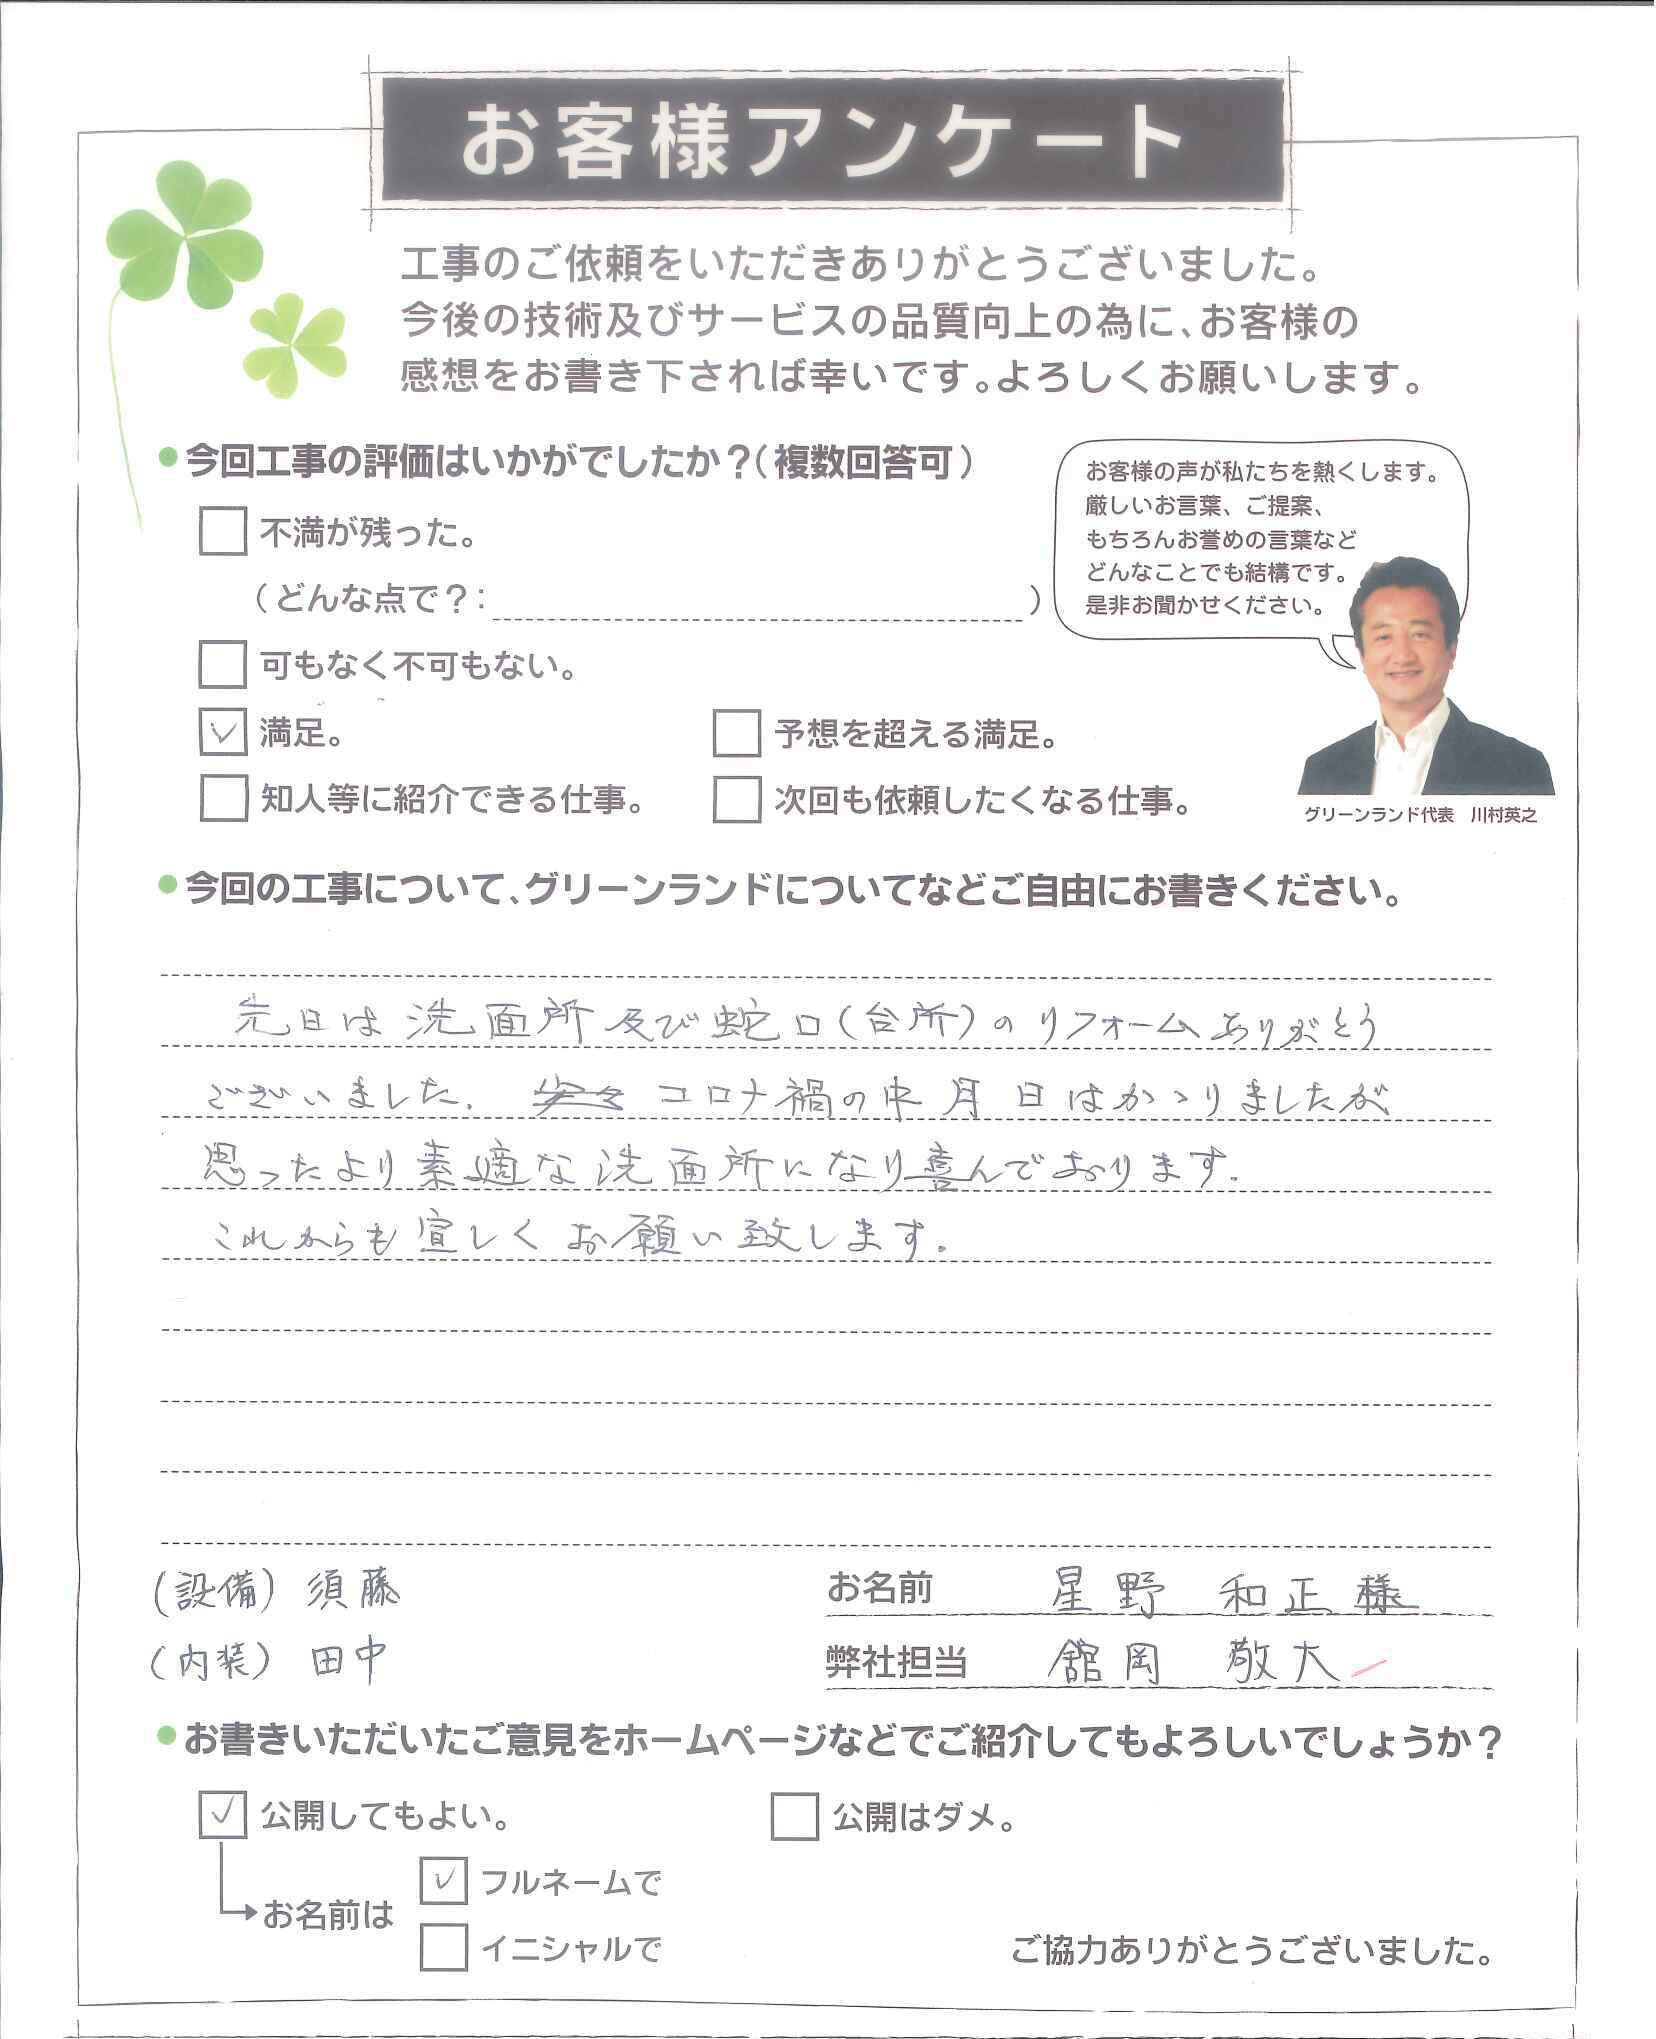 お客様アンケート
工事のご依頼をいただきありがとうございました。
今後の技術及びサービスの品質向上の為に、お客様の
感想をお書き下されば幸いです。よろしくお願いします。
今回工事の評価はいかがでしたか？（複数回答可）
不満が残った。
（どんな点で？：　）
可もなく不可もない。
満足。
予想を超える満足。
知人等に紹介できる仕事。
次回も依頼したくなる仕事。
お客様の声が私たちを熱くします。
厳しいお言葉、ご提案、
もちろんお誉めの言葉など
どんなことでも結構です。
是非お聞かせください。
グリーンランド代表　川村英之
今回の工事について、グリーンランドについてなどご自由にお書きください。
先日は洗面所及び蛇口（台所）のリフォームありがとう
ございました。コロナ禍の中月日はかゝりましたが
思ったより素適な洗面所になり喜んでおります。
これからも宜しくお願い致します。
（設備）須藤
（内装）田中
お名前　星野　和正様
弊社担当　舘岡　敬大
お書きいただいたご意見をホームページなどでご紹介してもよろしいでしょうか？
公開してもよい。
公開はダメ。
お名前は
フルネームで
イニシャルで
ご協力ありがとうございました。